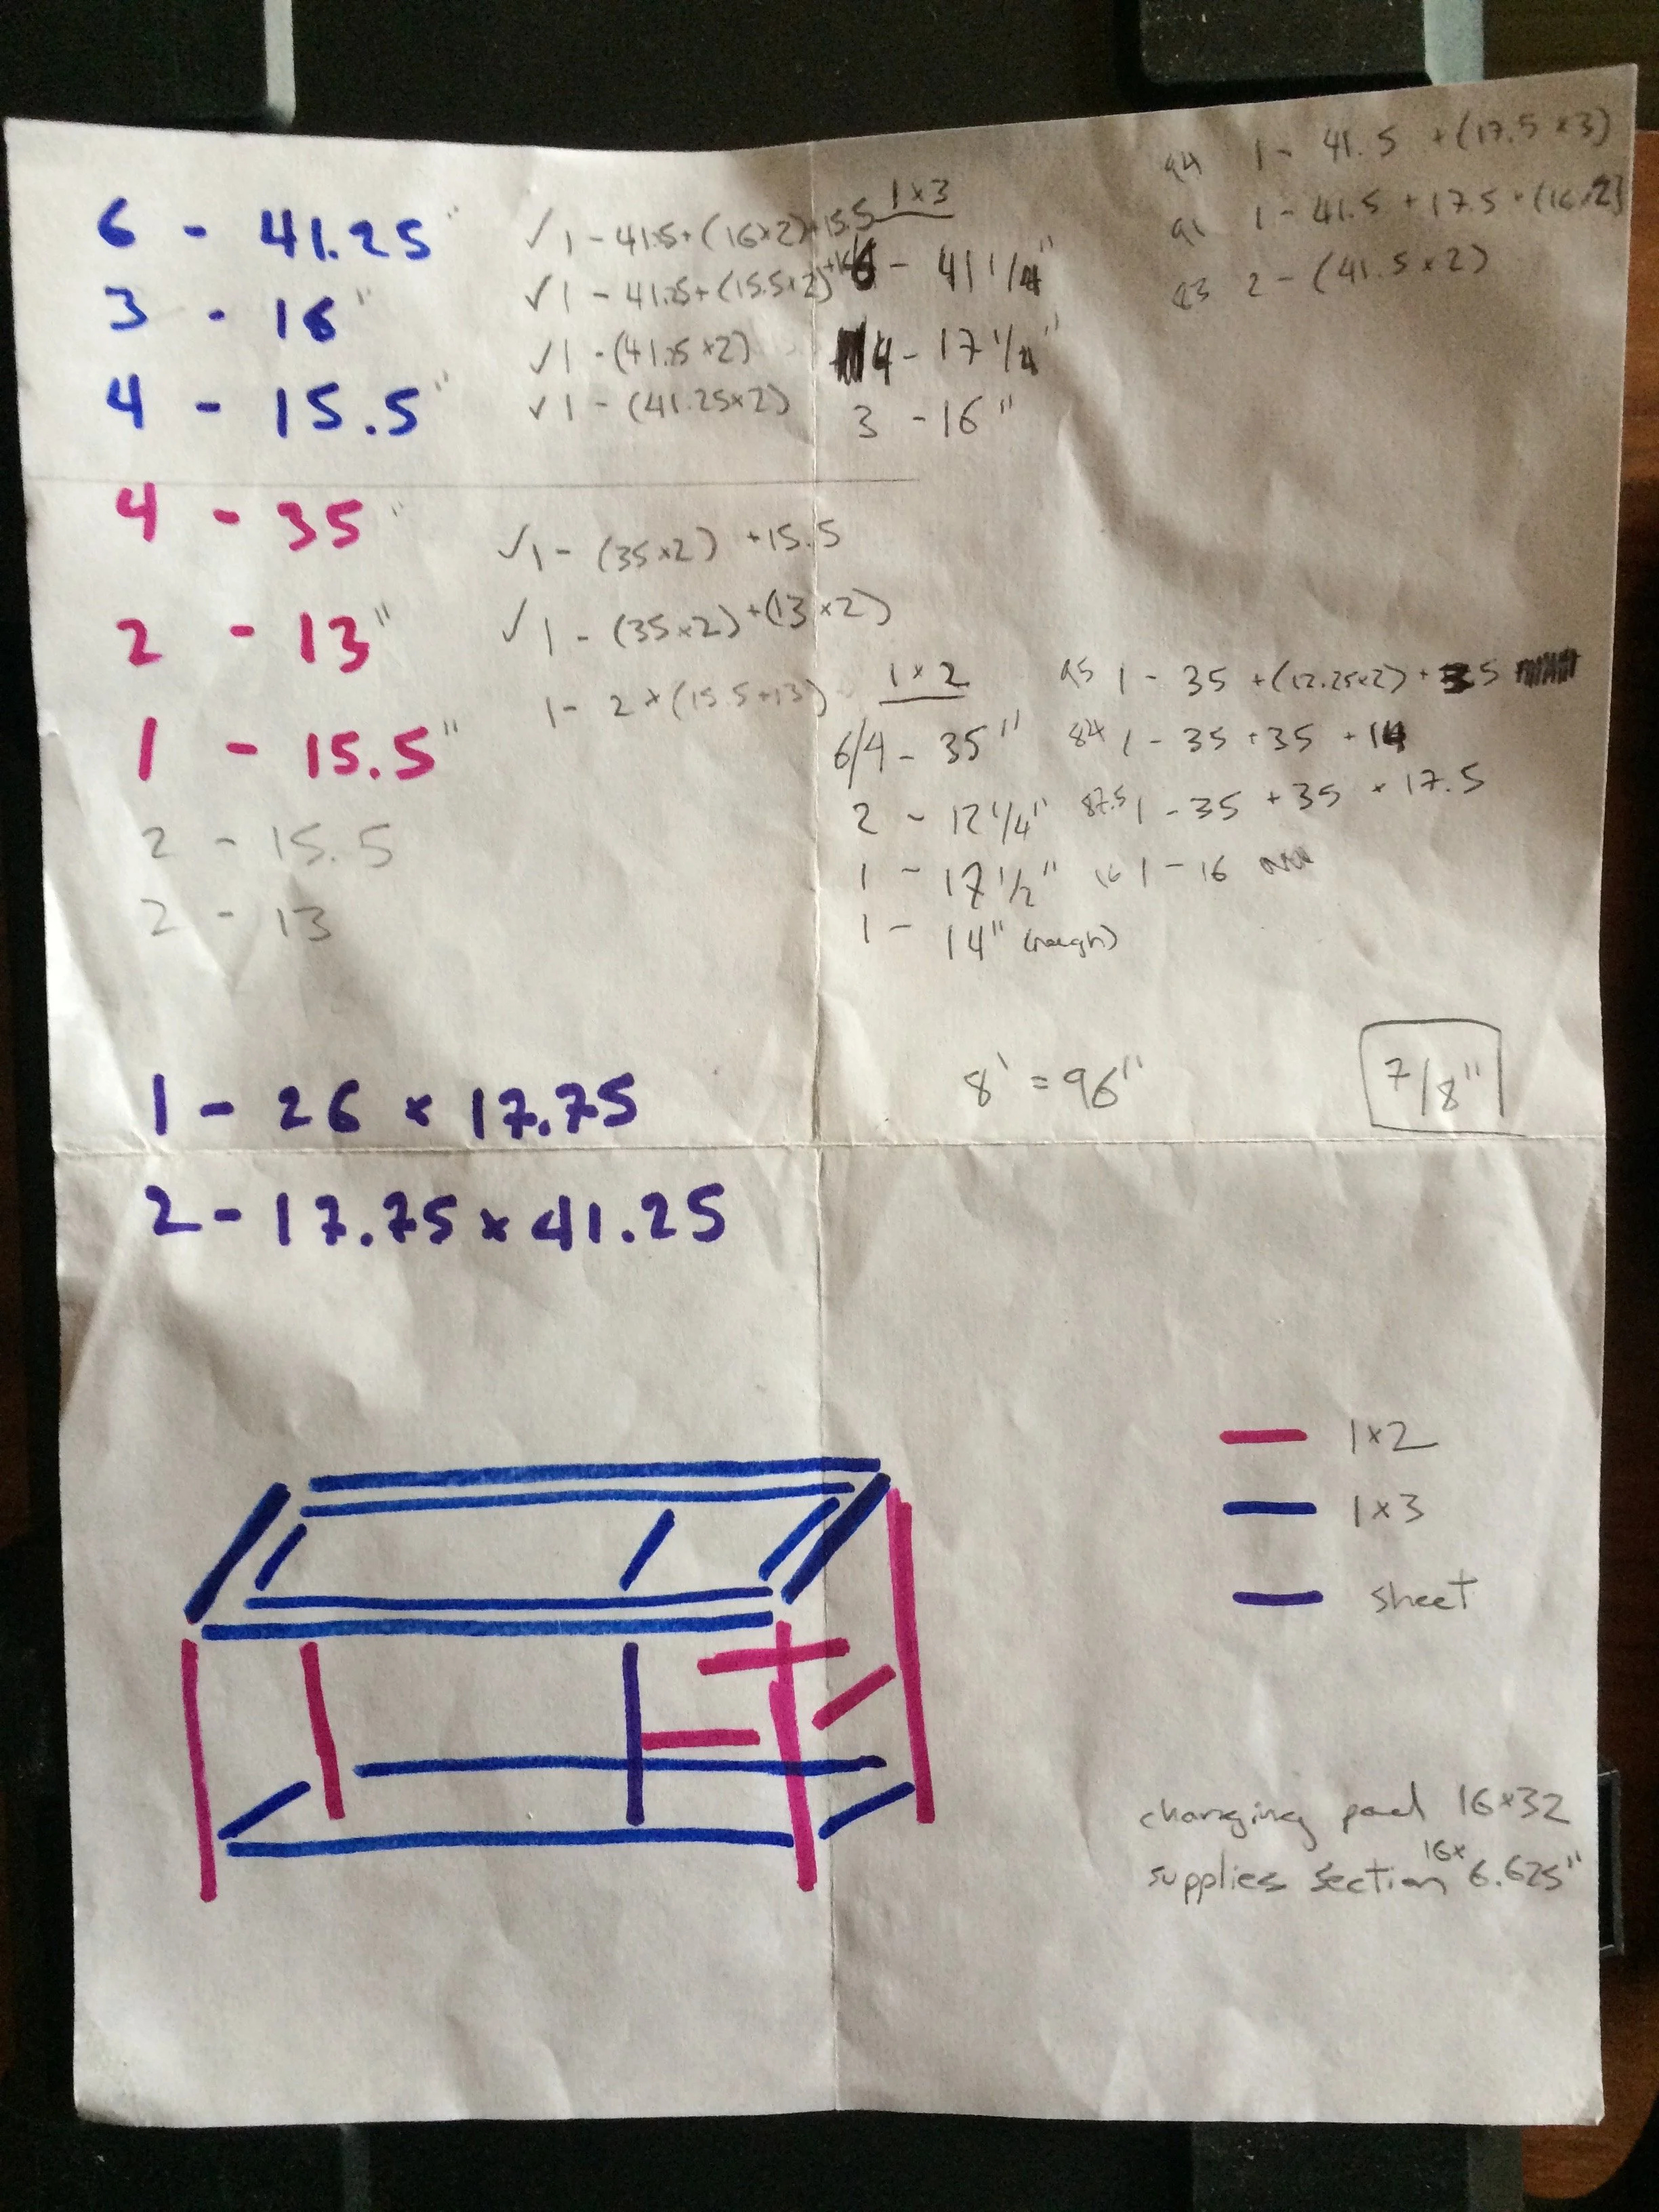 6 - 41.25"
3 - 16"
4 - 15.5"
✓ 1 - 41.5+(16x2)+15.5
✓ 1 - 41.25+(15.5x2)
✓ 1 - (41.25x2)
✓ 1 - (41.25x2)
1x3
6 - 41 1/4"
4 - 17 1/4"
3 - 16"
94 1 - 41.5 +(17.5x3)
91 1 - 41.5 + 17.5 + (16x2)
83 2 - (41.5x2)
4 - 35"
2 - 13"
1 - 15.5"
2 - 15.5
2 - 13
✓ 1 - (35x2) +15.5
✓ 1 - (35x2)+(13x2)
1 - 2x(15.5+13)
1x2
6/4 - 35"
2 - 12 1/4"
1 - 17 1/2"
1 - 14" (rough)
1 - 35 +(12.25x2) +
84 1 - 35 + 35 + 14
87.5 1 - 35 + 35 + 17.5
16 1 - 16
8' = 96"
7/8"
1 - 26 x 17.75
2 - 17.75 x 41.25
1x2
1x3
sheet
changing pad 16x32
supplies section 16x 6.625"